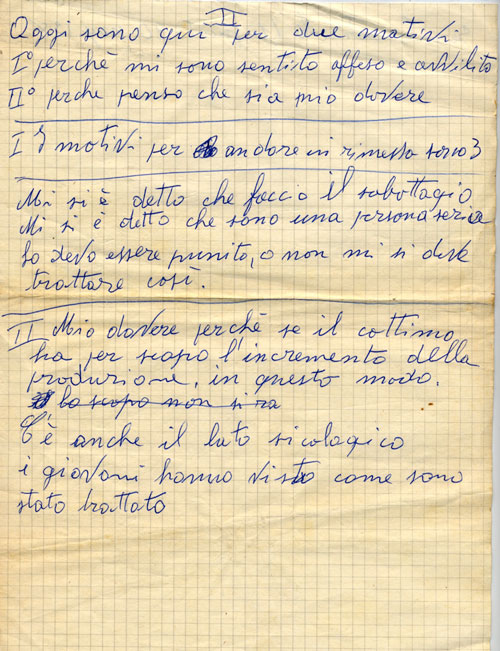 II
Oggi sono qui per due motivi
I° perchè mi sono sentito offeso e avvilito
II° perche penso che sia mio dovere
I I motivi per andare in rimessa sono 3
Mi si è detto che faccio il sabottagio
Mi si è detto che sono una persona seria
Io devo essere punito, o non mi si deve
trattare così.
II Mio dovere perchè se il cottimo
ha per scopo l'incremento della
produzione, in questo modo.
lo scopo non si ra
C'è anche il lato sicologico
i giovani hanno visto come sono
stato trattato